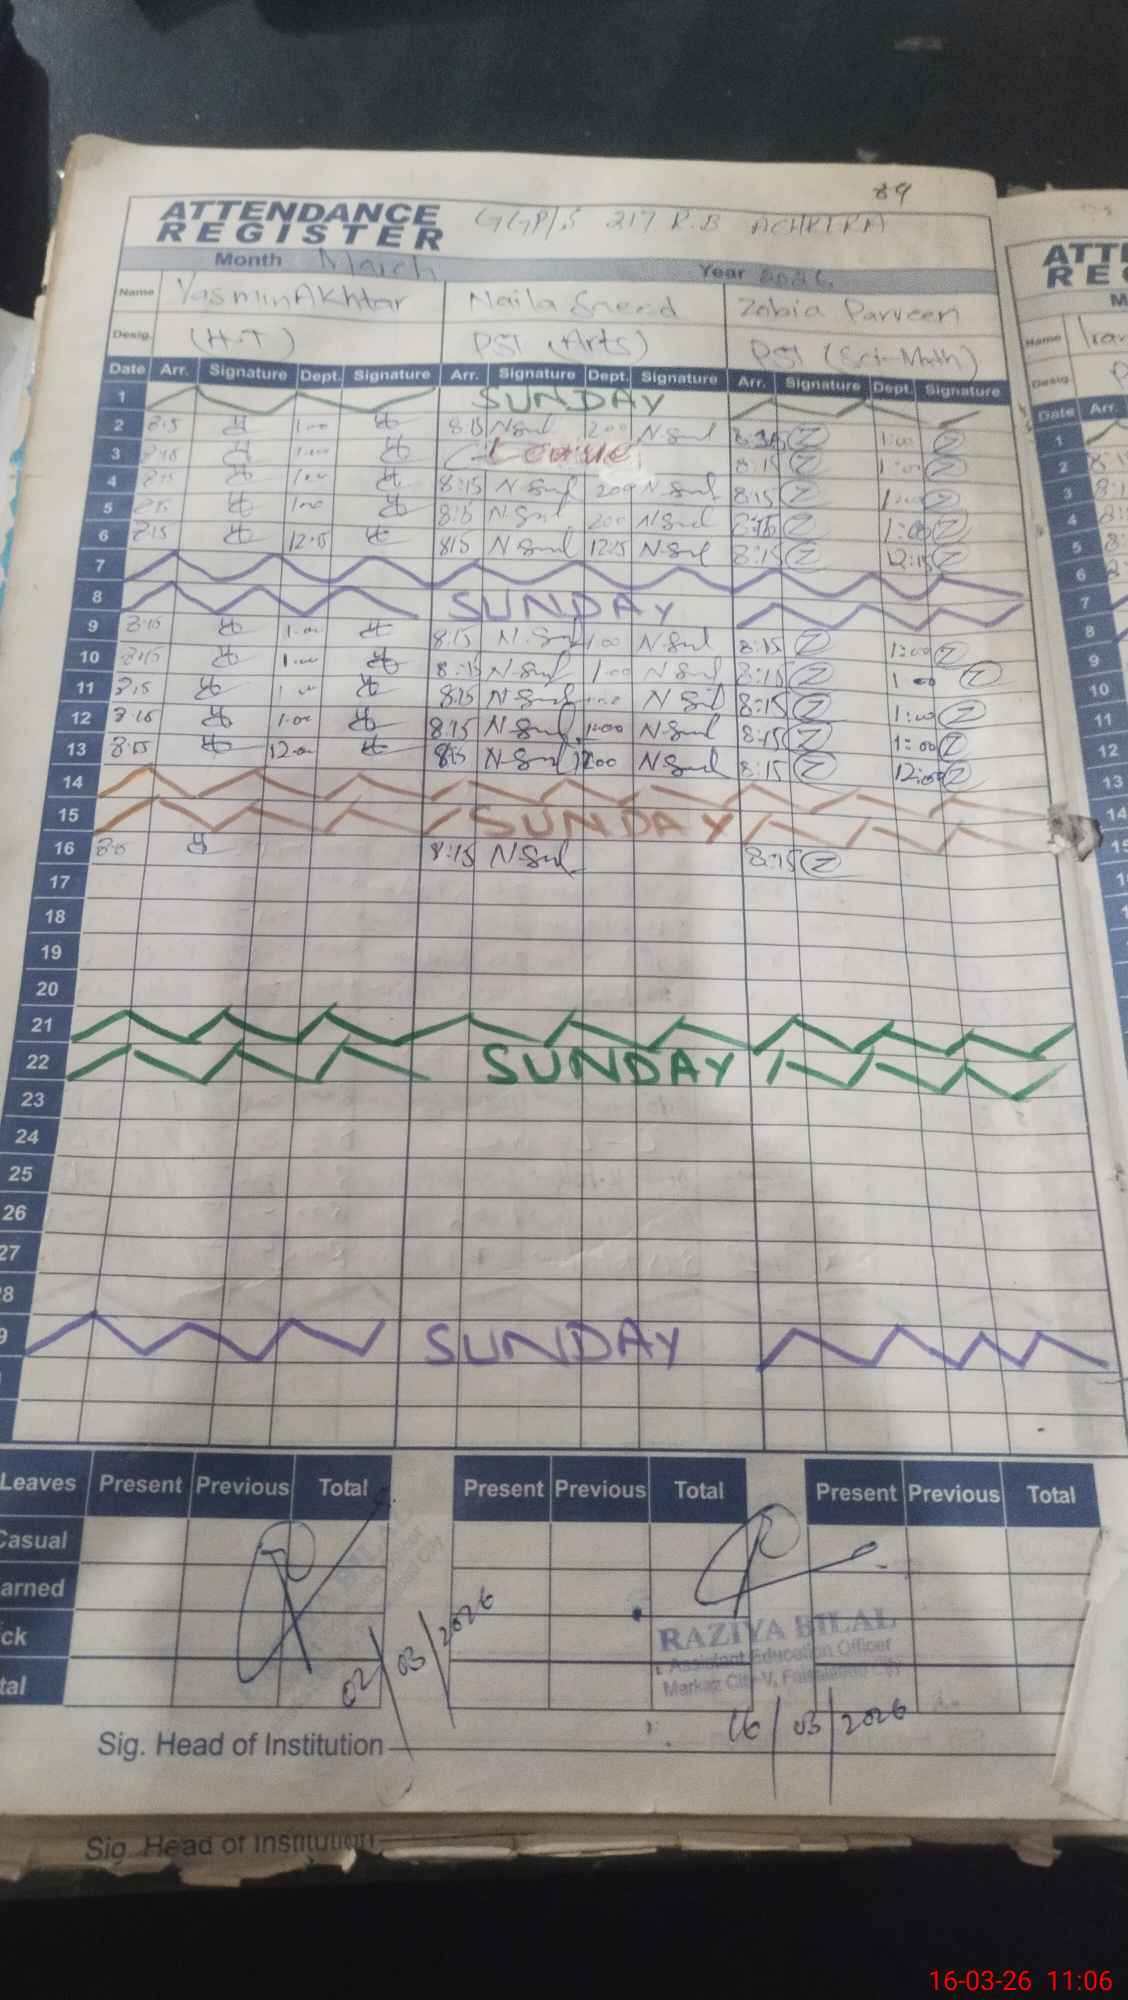 89
ATTENDANCE REGISTER GGP/S 217 R.B ACHKERA
Month March Year 2026
Name Yasmin Akhtar Naila Saeed Zobia Parveen
Desig. (H.T) PST (Arts) PST (Sci-Math)
Date Arr. Signature Dept. Signature Arr. Signature Dept. Signature Arr. Signature Dept. Signature
1 SUNDAY
2 8:15 1:00 8:15 200 8:15 1:00
3 8:15 1:00 Leave 8:15 1:00
4 8:15 1:00 8:15 200 8:15 1:00
5 8:15 1:00 8:15 200 8:15 1:00
6 8:15 12:15 8:15 12:15 8:15 12:15
7
8 SUNDAY
9 8:15 1:00 8:15 1:00 8:15 1:00
10 8:15 1:00 8:15 1:00 8:15 1:00
11 8:15 1:00 8:15 8:15 1:00
12 8:15 1:00 8:15 1:00 8:15 1:00
13 8:15 12:00 8:15 1200 8:15 12:00
14
15 SUNDAY
16 8:15 8:15 8:15
17
18
19
20
21
22 SUNDAY
23
24
25
26
27
8
9 SUNDAY
Leaves Present Previous Total Present Previous Total Present Previous Total
Casual
arned
ck
tal
02/03/2026
RAZIYA BILAL
Assistant Education Officer
Markaz City-V, Faisalabad City
16/03/2026
Sig. Head of Institution
Sig. Head of Institution
ATT
RE
M
Name Irav
Desig. P
Date Arr.
1
2
3
4
5
6
7
8
9
10
11
12
13
14
15
16-03-26 11:06